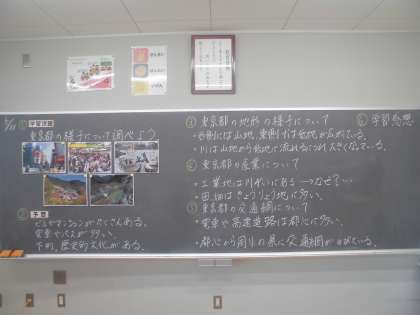 学習計画
東京都の様子について調べよう
② 予想
ビルやマンションがたくさんある。
電車やバスが多い。
下町、歴史的文化がある。
③ 東京都の地形の様子について
・西側には山地、東側には低地が広がっている。
・川は山地から低地に流れるにつれ大きくなっている。
④ 東京都の産業について
・工業地は川ぞいにある → なぜ?
・田、畑は
⑤ 東京都の交通網について
・電車や高速道路は都心に多い。
・都心から周りの県に交通網がのびている。
⑥ 学習感想